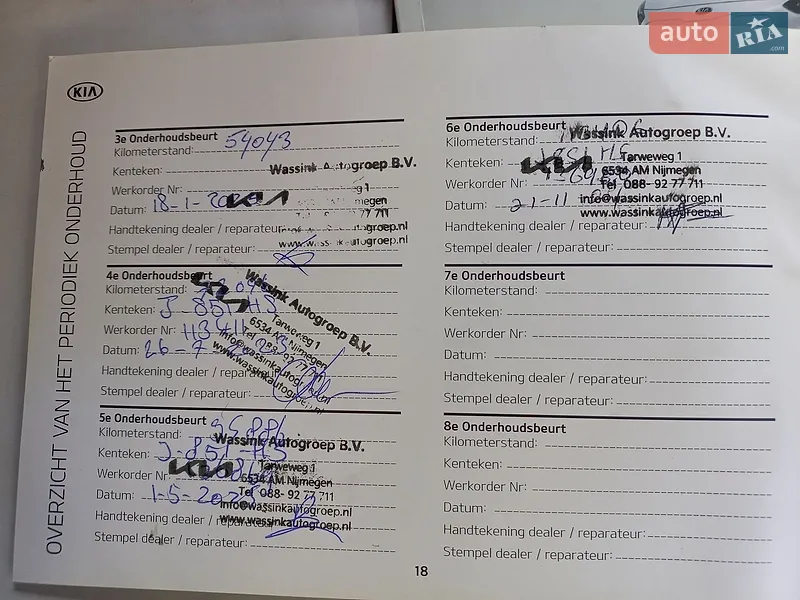 auto RIA .com
KIA
OVERZICHT VAN HET PERIODIEK ONDERHOUD
3e Onderhoudsbeurt
Kilometerstand: 54043
Kenteken: Wassink Autogroep B.V.
Werkorder Nr:
Datum: 18-1-
Handtekening dealer / reparateur:
www.wassinkautogroep.nl
Stempel dealer / reparateur:
4e Onderhoudsbeurt
Wassink Autogroep B.V.
Kilometerstand:
Tarweweg 1
Kenteken: J-851-HS
6534 AM Nijmegen
Werkorder Nr:
Tel 088- 92 77 711
Datum: 26-7
Handtekening dealer / reparateur:
Stempel dealer / reparateur:
5e Onderhoudsbeurt
Kilometerstand:
Wassink Autogroep B.V.
Kenteken: J-851-HS
Tarweweg 1
Werkorder Nr:
6534 AM Nijmegen
Tel 088- 92 77 711
Datum: 1-5-
info@wassinkautogroep.nl
Handtekening dealer / reparateur:
www.wassinkautogroep.nl
Stempel dealer / reparateur:
6e Onderhoudsbeurt
Wassink Autogroep B.V.
Kilometerstand:
Kenteken: Tarweweg 1
6534 AM Nijmegen
Werkorder Nr: Tel 088- 92 77 711
Datum: 21-11
info@wassinkautogroep.nl
www.wassinkautogroep.nl
Handtekening dealer / reparateur:
Stempel dealer / reparateur:
7e Onderhoudsbeurt
Kilometerstand:
Kenteken:
Werkorder Nr:
Datum:
Handtekening dealer / reparateur:
Stempel dealer / reparateur:
8e Onderhoudsbeurt
Kilometerstand:
Kenteken:
Werkorder Nr:
Datum:
Handtekening dealer / reparateur:
Stempel dealer / reparateur:
18